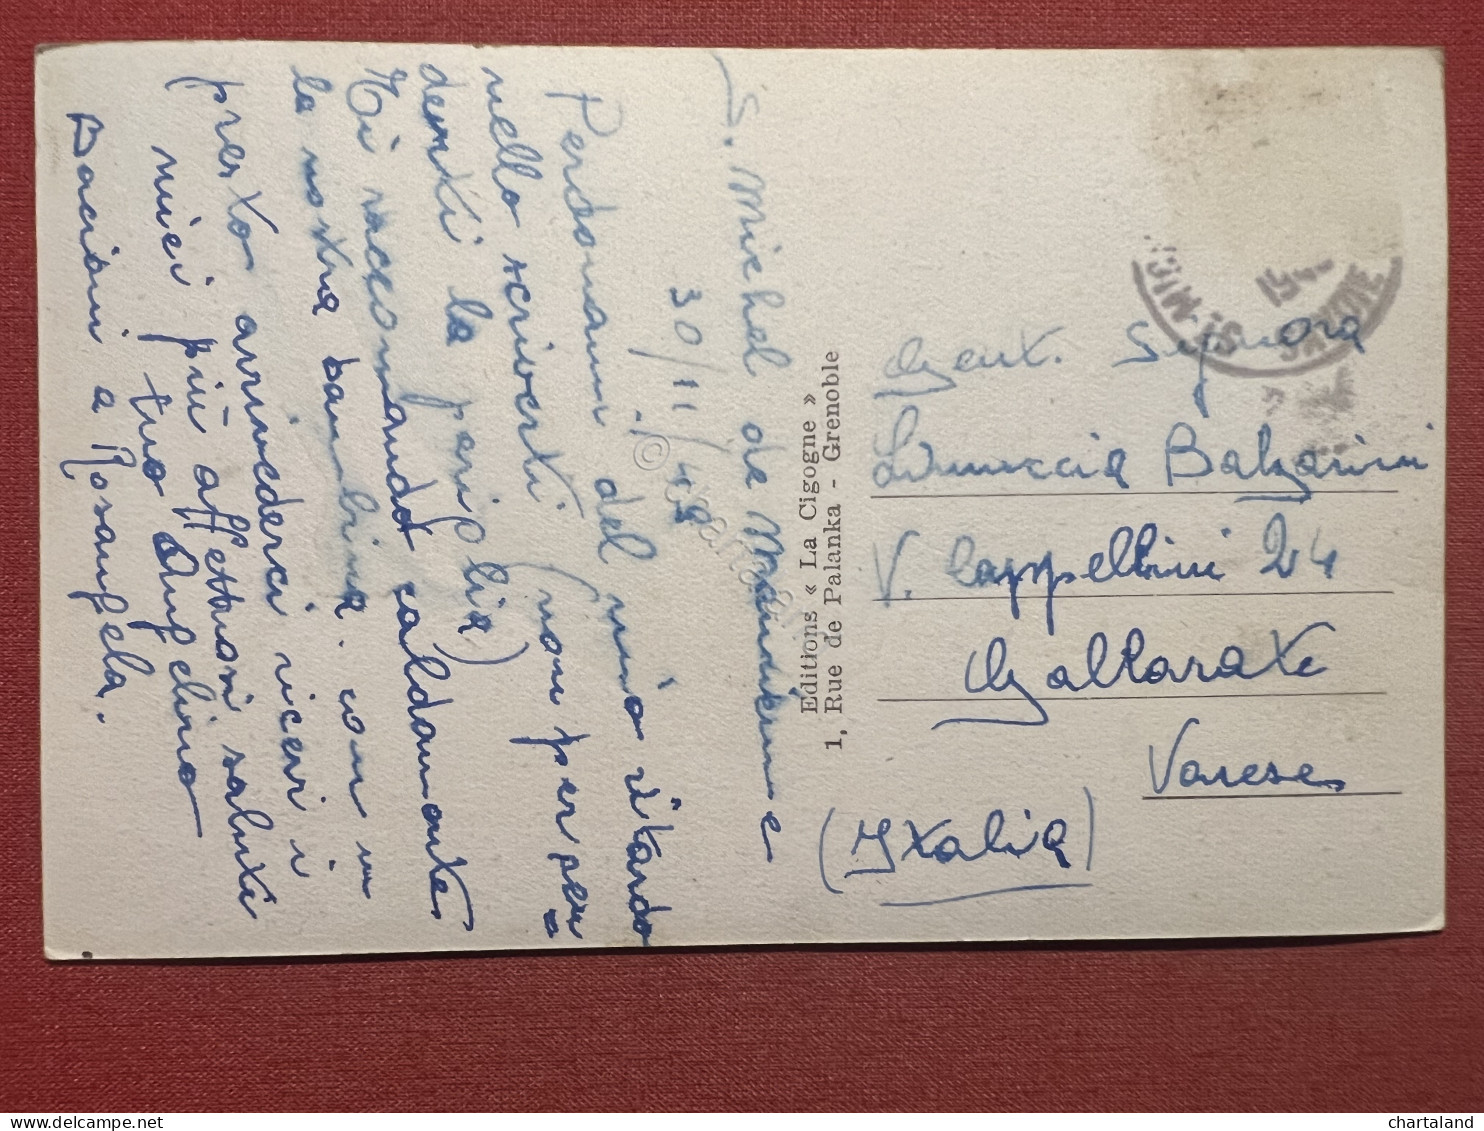 S. Michel de Maurienne
30/11/48
Perdonami del mio ritardo
nello scriverti (non per per
derti la periplia)
Ti raccomando caldamente
la nostra bambina. con un
presto arrivederci ricevi i
miei più affettuosi saluti
tuo Angelino
Bacioni a Rosangela.
Editions « La Cigogne »
1, Rue de Palanka - Grenoble
ST MICHEL
SAVOIE
Gent. Signora
Balzarini
V. Cappellini 24
Gallarate
Varese
(Italia)
© chartaland
chartaland